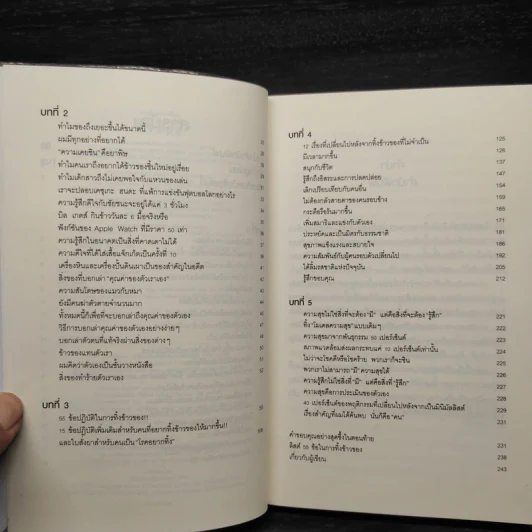 บทที่ 2
ทำไมของถึงเยอะขึ้นได้ขนาดนี้
ผมมีทุกอย่างที่อยากได้
"ความเคยชิน" คือยาพิษ
ทำไมคนเราถึงอยากได้ข้าวของชิ้นใหม่อยู่เรื่อย
ทำไมเด็กสาวถึงไม่เคยพอใจกับแหวนของเล่น
เราจะปลอบเคซุเกะ ฮนดะ ที่แพ้การแข่งขันฟุตบอลโลกอย่างไร
ความรู้สึกดีใจกับชัยชนะจะอยู่ได้แค่ 3 ชั่วโมง
บิล เกตส์ กินข้าววันละ 6 มื้อจริงหรือ
ฟังก์ชันของ Apple Watch ที่มีราคา 50 เท่า
ความรู้สึกในอนาคตเป็นสิ่งที่คาดเดาไม่ได้
ความดีใจที่ได้ใส่เสื้อแจ็กเก็ตเป็นครั้งที่ 10
เครื่องหินและเครื่องปั้นดินเผาเป็นของสำคัญในอดีต
สิ่งของที่บอกเล่า "คุณค่าของตัวเราเอง"
ความสันโดษของแมวกับหมา
ยังมีคนฆ่าตัวตายจำนวนมาก
ทั้งหมดนี้ก็เพื่อที่จะบอกเล่าถึงคุณค่าของตัวเอง
วิธีการบอกเล่าคุณค่าของตัวเองอย่างง่ายๆ
บอกเล่าตัวตนที่แท้จริงผ่านสิ่งของต่างๆ
ข้าวของแทนตัวเรา
ผมคิดว่าตัวเองเป็นชั้นวางหนังสือ
สิ่งของทำร้ายตัวเราเอง
บทที่ 3
55 ข้อปฏิบัติในการทิ้งข้าวของ!!
15 ข้อปฏิบัติเพิ่มเติมสำหรับคนที่อยากทิ้งข้าวของให้มากขึ้น!!
และใบสั่งยาสำหรับคนเป็น "โรคอยากทิ้ง"
บทที่ 4
12 เรื่องที่เปลี่ยนไปหลังจากทิ้งข้าวของที่ไม่จำเป็น 125
มีเวลามากขึ้น 126
สนุกกับชีวิต 137
รู้สึกถึงอิสระและการปลดปล่อย 147
เลิกเปรียบเทียบกับคนอื่น 154
ไม่ต้องกลัวสายตาของคนรอบข้าง 159
กระตือรือร้นมากขึ้น 165
เพิ่มสมาธิและแข่งกับตัวเอง 171
ประหยัดและเป็นมิตรกับธรรมชาติ 181
สุขภาพแข็งแรงและสบายใจ 185
ความสัมพันธ์กับผู้คนรอบตัวเปลี่ยนไป
ได้ลิ้มรสชาติแห่งปัจจุบัน 205
รู้สึกขอบคุณ 212
บทที่ 5
ความสุขไม่ใช่สิ่งที่จะต้อง "มี" แต่คือสิ่งที่จะต้อง "รู้สึก" 221
ทิ้ง "โมเดลความสุข" แบบเดิมๆ 221
ความสุขมาจากพันธุกรรม 50 เปอร์เซ็นต์
ภาพแวดล้อมส่งผลกระทบแค่ 10 เปอร์เซ็นต์เท่านั้น
ไม่ว่าจะโชคดีหรือโชคร้าย พวกเราก็จะชิน
พวกเราไม่สามารถ "มี" ความสุขได้
ความรู้สึกไม่ใช่สิ่งที่ "มี" แต่คือสิ่งที่ "รู้สึก"
ความสุขคือการประเมินของตัวเอง
40 เปอร์เซ็นต์ของพฤติกรรมที่เปลี่ยนไปหลังจากเป็นมินิมัลลิสต์
เรื่องสำคัญที่ผมได้ค้นพบ นั่นก็คือ "คน"
คำขอบคุณอย่างสุดซึ้งในตอนท้าย
ลิสต์ 55 ข้อในการทิ้งข้าวของ
เกี่ยวกับผู้เขียน 243